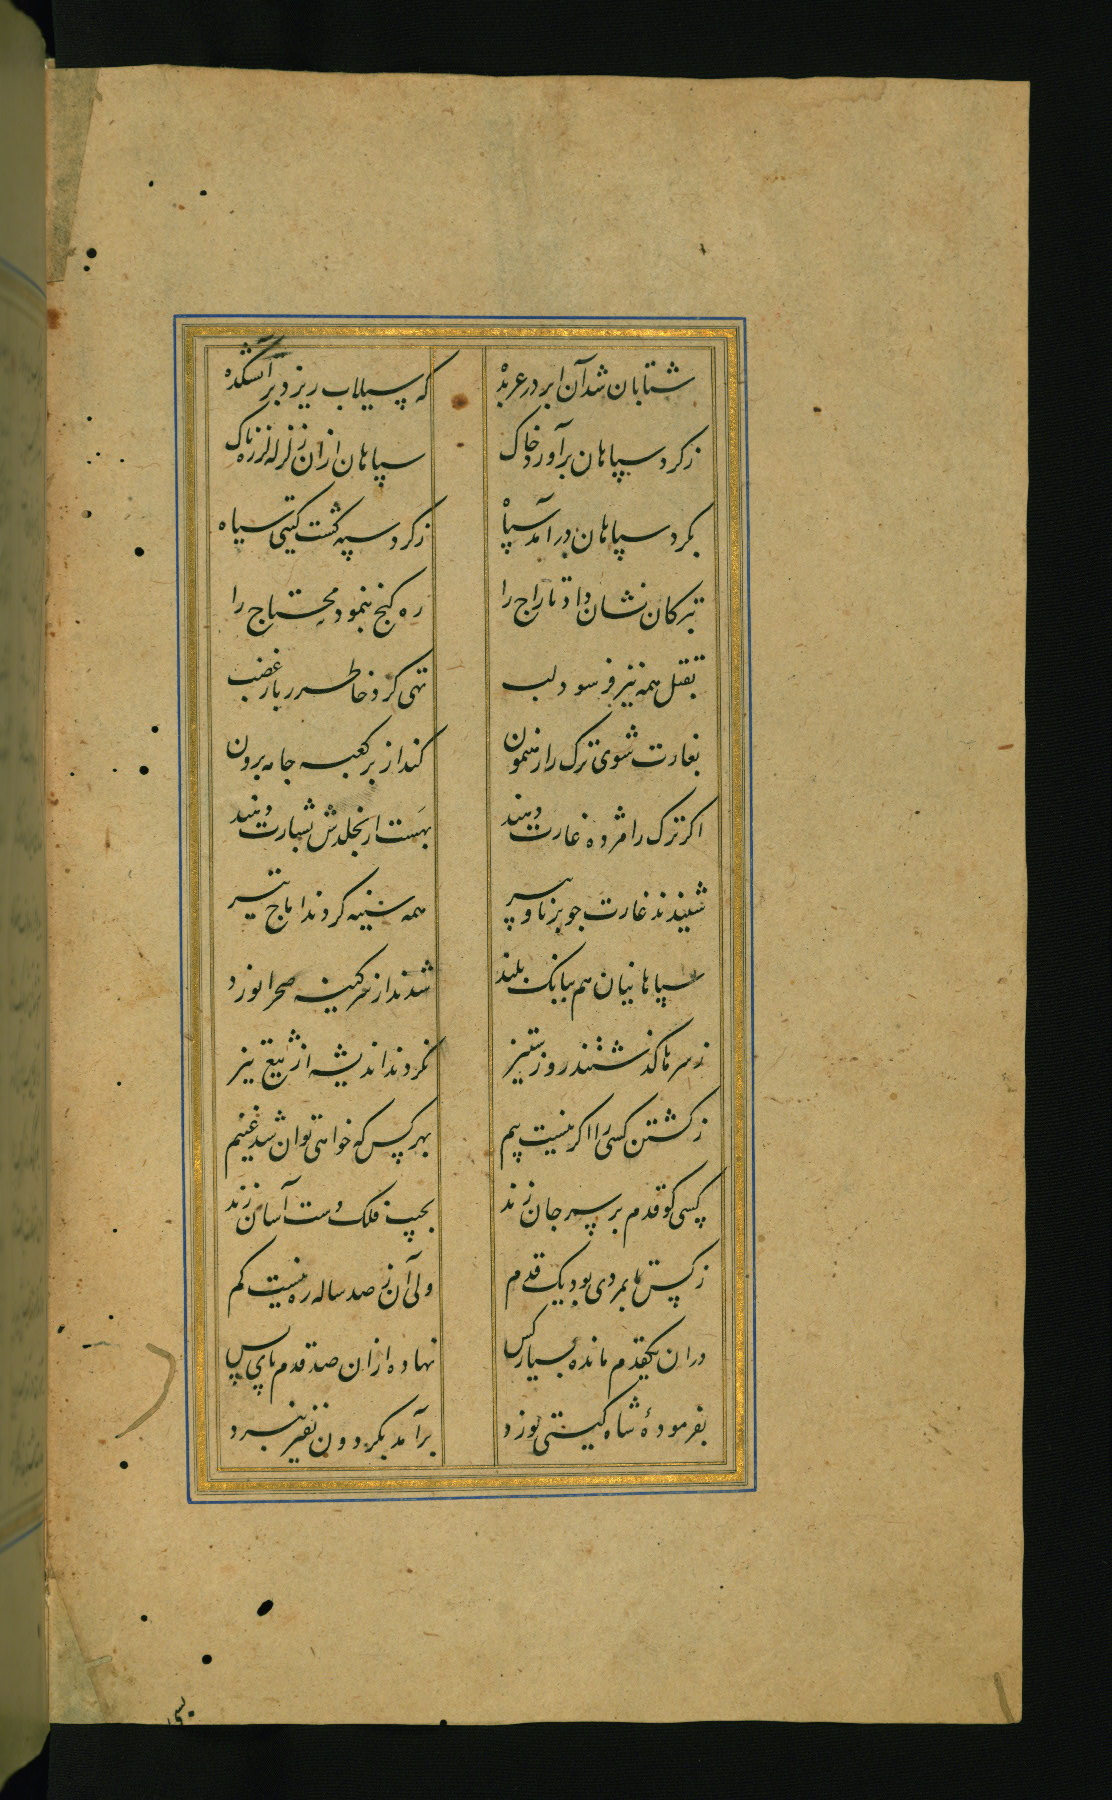 شتابان شد آن ابر در عربده که سیلاب ریزد بر آتشکده
ز کرد سپاهان برآورد خاک سپاهان از ان زلزله لرزه ناک
بکرد سپاهان درآمد سپاه ز کرد سپه کشت کیتی سیاه
بترکان نشان داد تاراج را ره کنج بنمود محتاج را
بقتل همه نیز فرسود لب تهی کرد خاطر ز بار غضب
بغارت شوی ترک را رهنمون کند از بر کعبه جامه برون
اکر ترک را مژده غارت دهند بهست از بخلدش بشارت دهند
شنیدند غارت چو برنا و پیر همه سینه کردند اماج تیر
سپاهانیان هم ببانک بلند شدند از سر کینه صحرا نورد
ز سرها کذشتند روز ستیز نکردند اندیشه از تیغ تیز
ز کشتن کسی را اکر نیست بیم بهر کس که خواهی توان شد غنیم
کسی کو قدم بر سر جان زند بچیب فلک دست آسان زند
ز کس تا بمردی بود یک قدم ولی آن ز صد ساله ره نیست کم
دران یکقدم مانده بسیار کس نهاده ازان صد قدم پای پس
بفرمودۀ شاه کیتی نورد برآمد بکردون نفیر نبرد